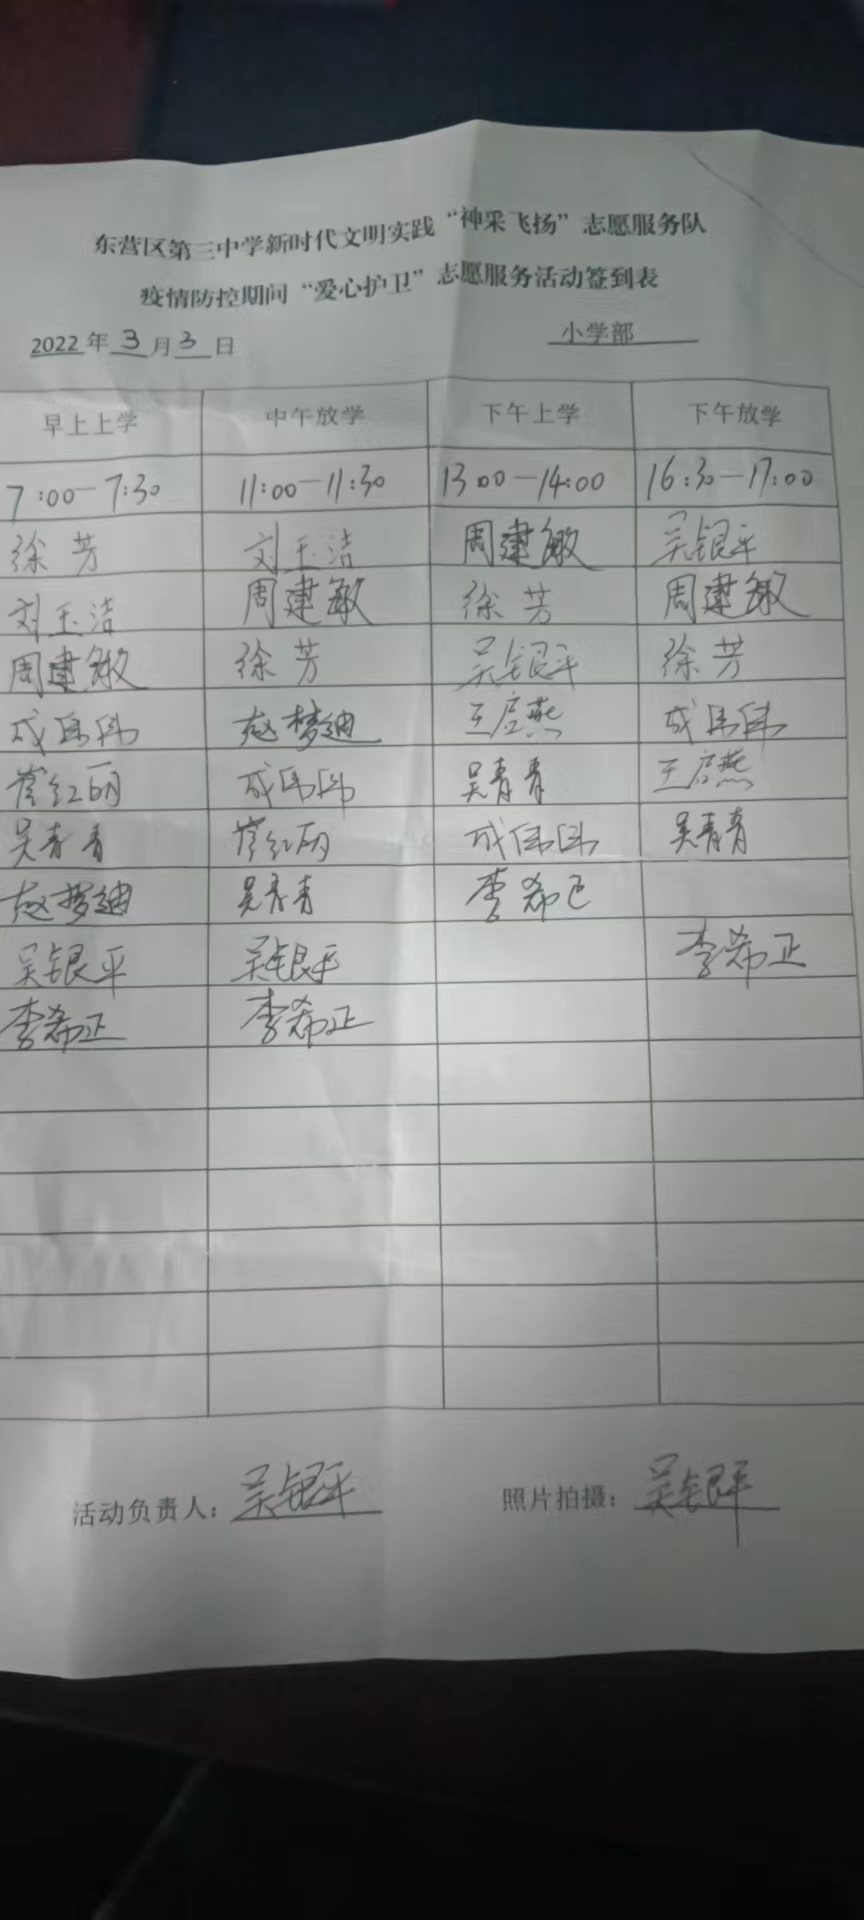 东营区第三中学新时代文明实践“神采飞扬”志愿服务队
疫情防控期间“爱心护卫”志愿服务活动签到表
2022年3月3日 小学部
早上上学 中午放学 下午上学 下午放学
7:00-7:30 11:00-11:30 13:00-14:00 16:30-17:00
徐芳 刘玉洁 周建敏 吴银平
刘玉洁 周建敏 徐芳 周建敏
周建敏 徐芳 吴银平 徐芳
成伟伟 赵梦迪 王启燕 成伟伟
崔红丽 成伟伟 吴青青 王启燕
吴青青 崔红丽 成伟伟 吴青青
赵梦迪 吴青青 李希正
吴银平 吴银平 李希正
李希正 李希正
活动负责人：吴银平 照片拍摄：吴银平